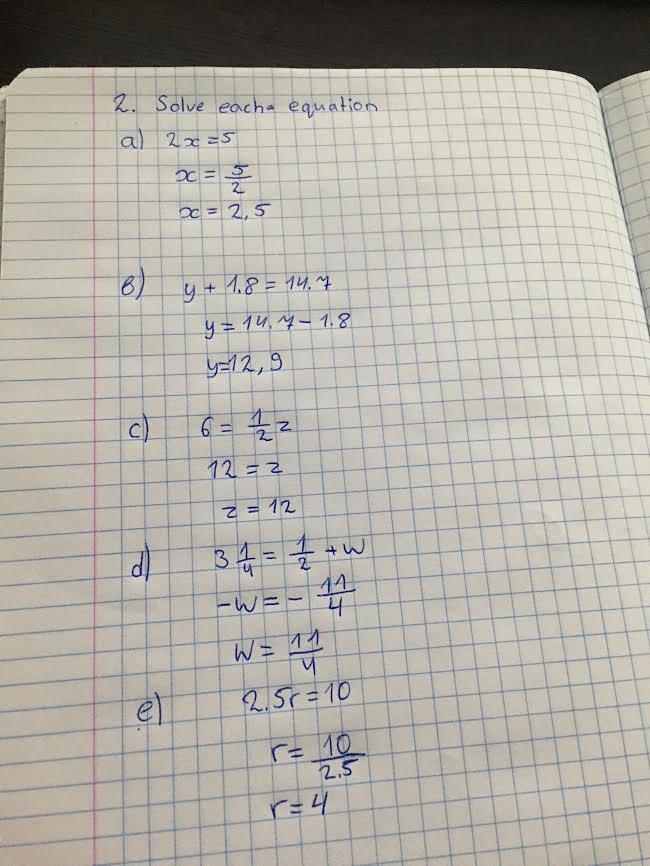 2. Solve each equation
a) 2x=5
x = 5/2
x = 2,5
b) y + 1.8 = 14.7
y = 14.7 - 1.8
y=12,9
c) 6 = 1/2 z
12 = z
z = 12
d) 3 1/4 = 1/2 + W
-W = - 11/4
W = 11/4
e) 2.5r = 10
r = 10/2.5
r = 4